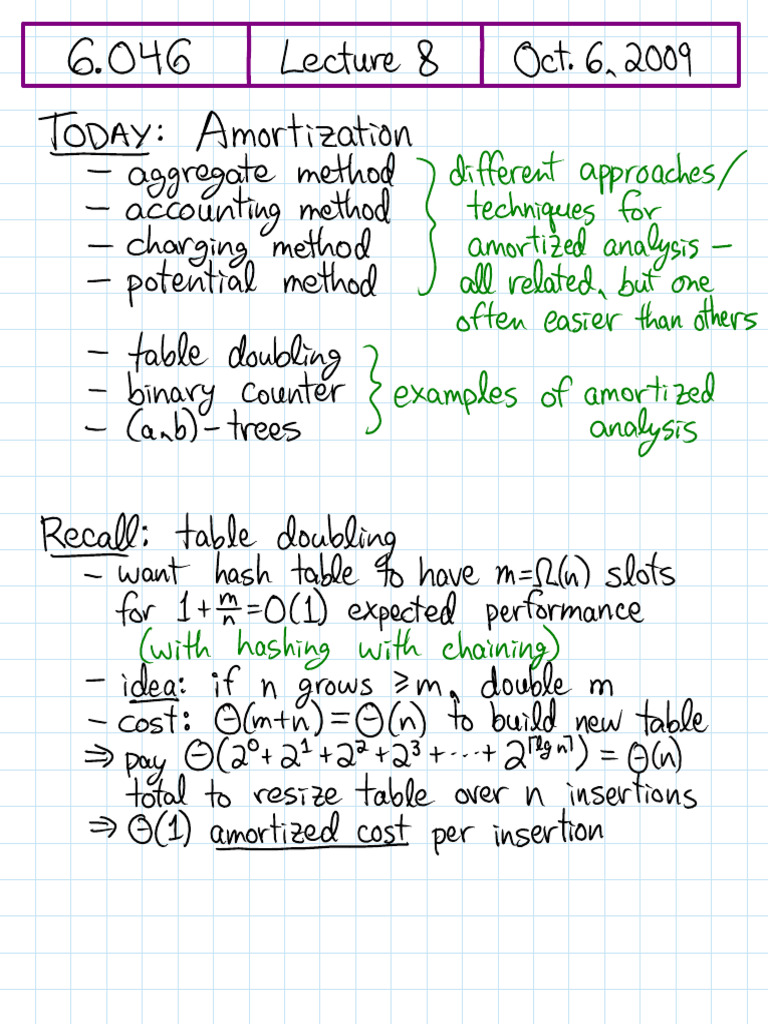 6.046 Lecture 8 Oct. 6, 2009
TODAY: Amortization
- aggregate method
- accounting method
- charging method
- potential method
different approaches/
techniques for
amortized analysis -
all related, but one
often easier than others
- table doubling
- binary counter
- (a,b)-trees
examples of amortized
analysis
Recall: table doubling
- want hash table to have m=Ω(n) slots
for 1+m/n=O(1) expected performance
(with hashing with chaining)
- idea: if n grows ≥m, double m
- cost: Θ(m+n)=Θ(n) to build new table
⇒ pay Θ(2⁰+2¹+2²+2³+⋯+2^⌈lg n⌉) = Θ(n)
total to resize table over n insertions
⇒ Θ(1) amortized cost per insertion